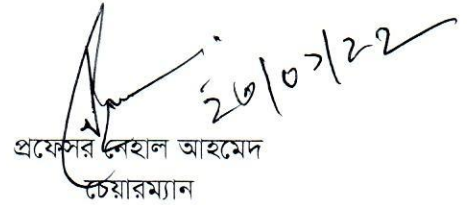 ২৩/০১/২২
প্রফেসর নেহাল আহমেদ
চেয়ারম্যান